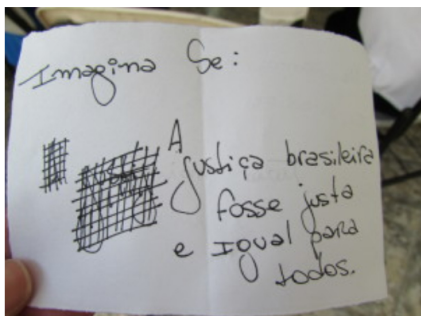 Imagina Se:
A
justiça brasileira
fosse justa
e igual para
todos.